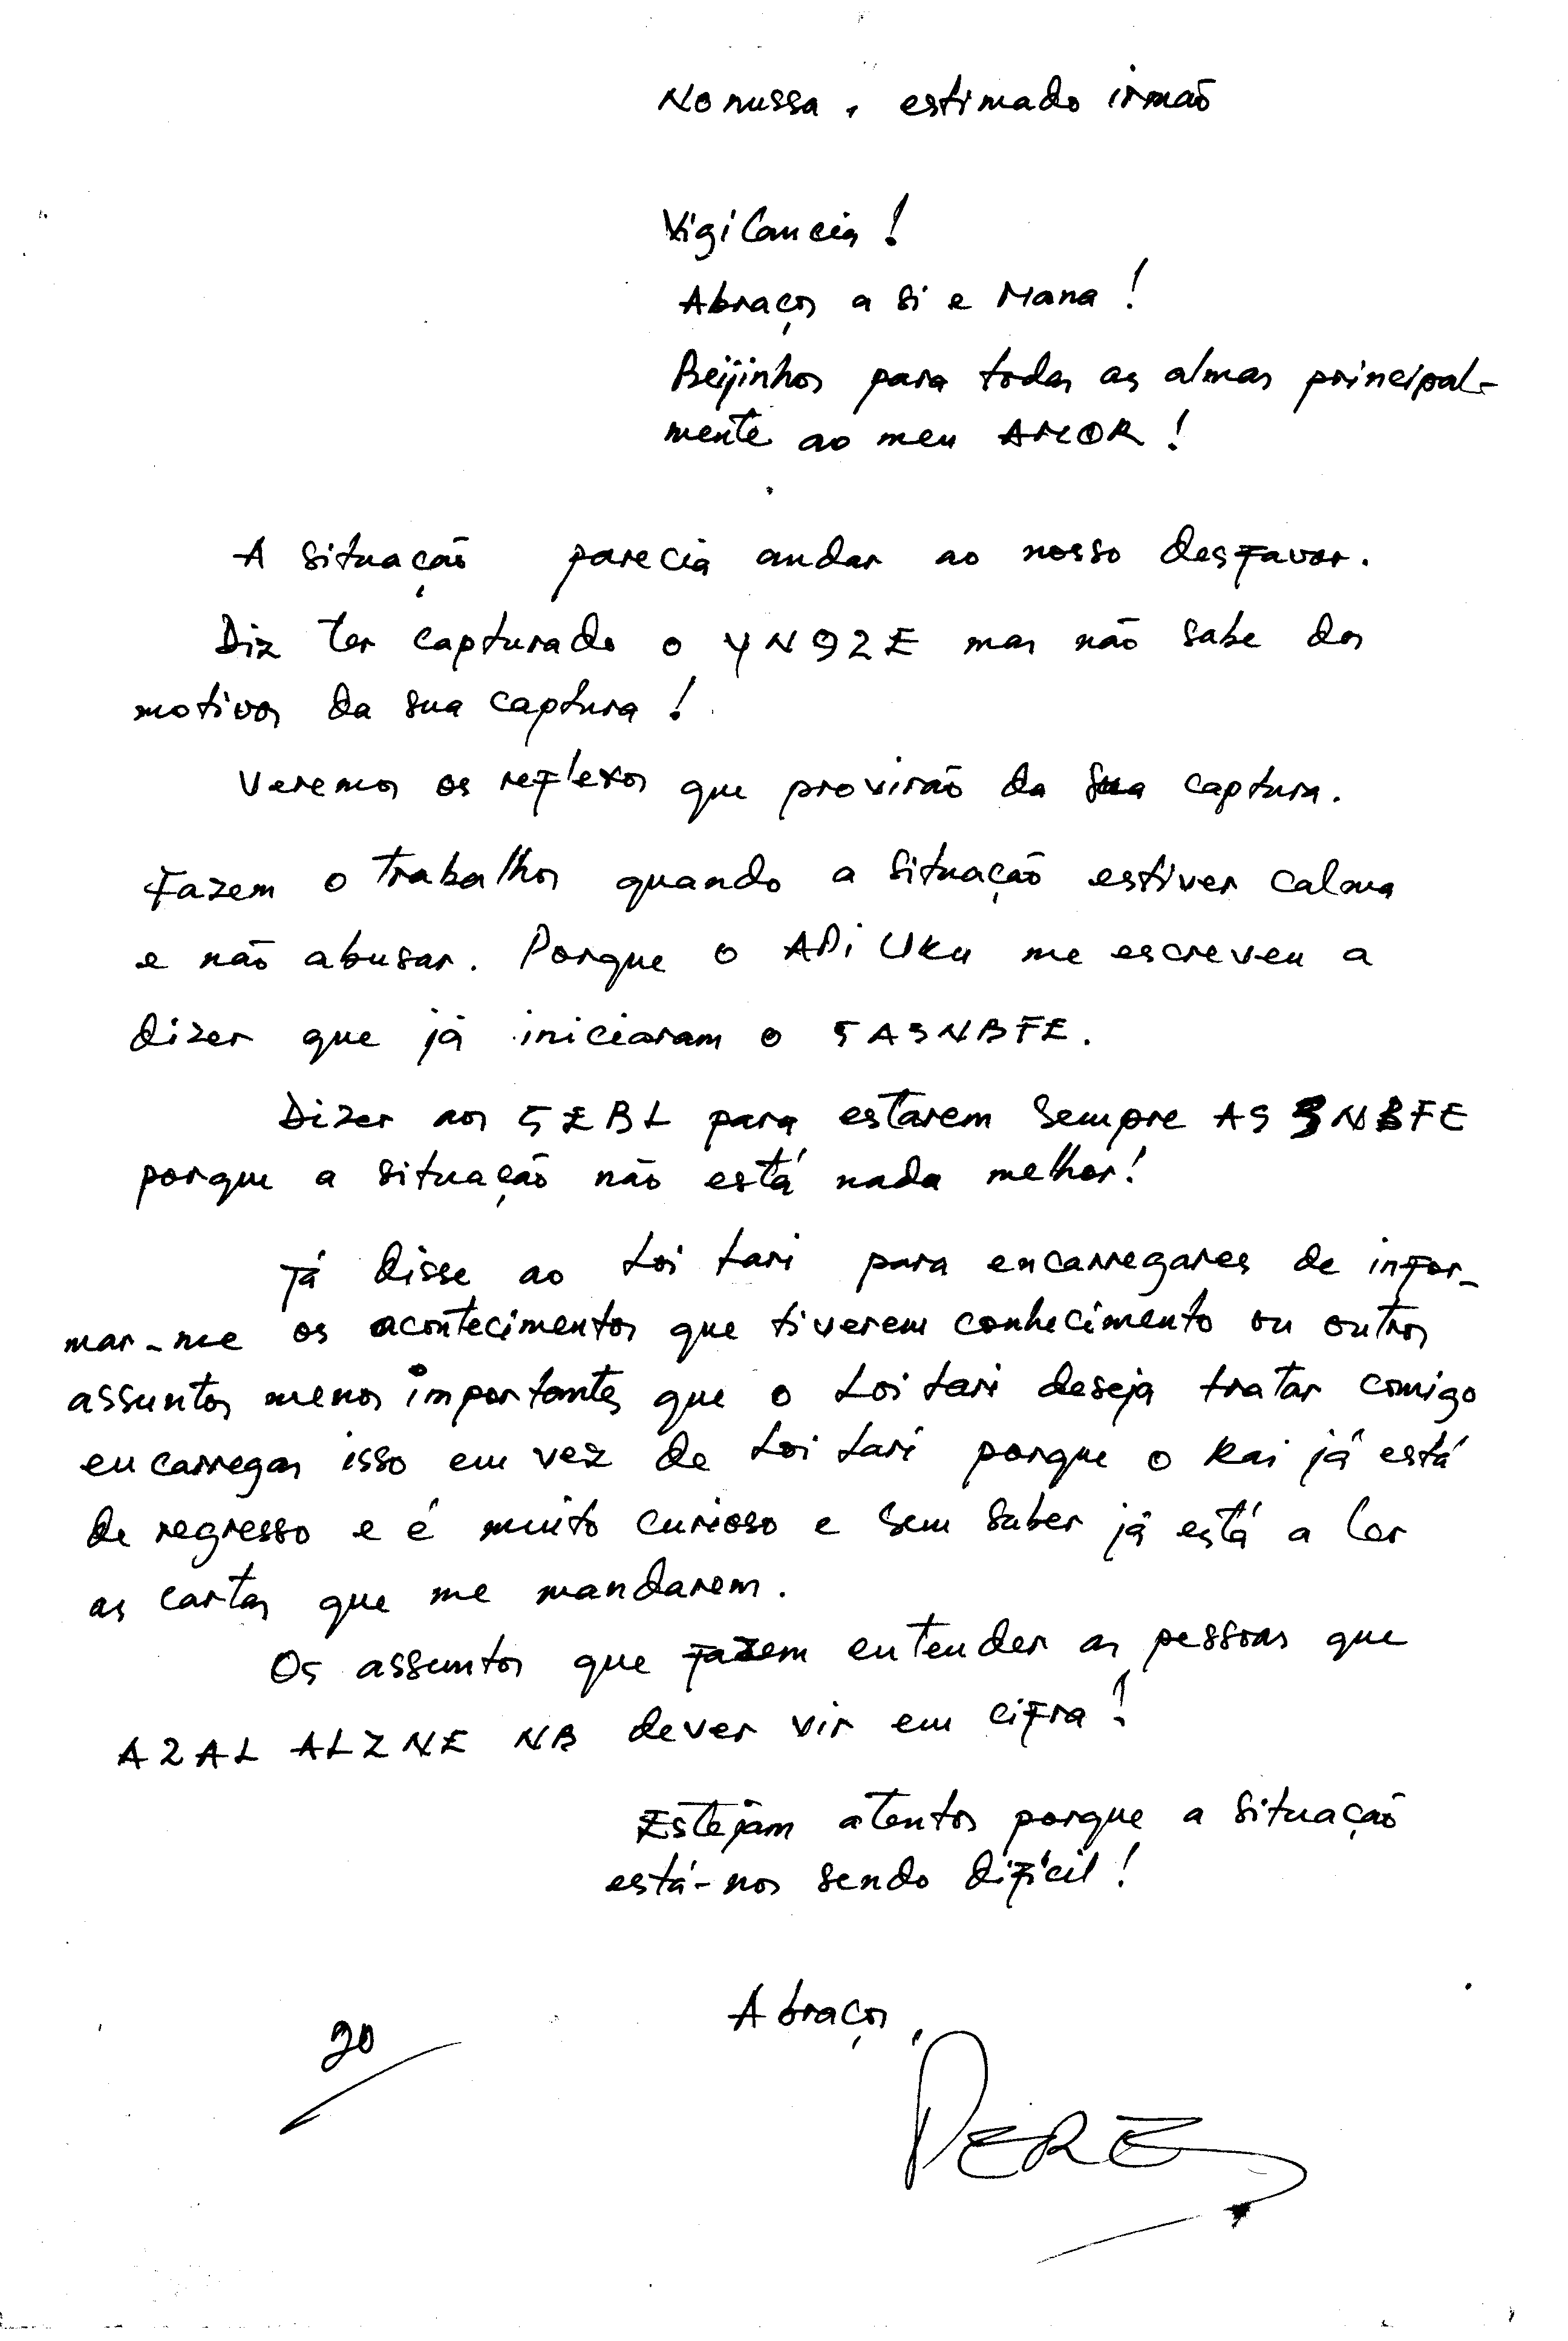 Nonussa, estimado irmão
Vigilancia!
Abraços a si e Mana!
Beijinhos para todas as almas principal-
mente ao meu AMOR!
A situação parecia andar ao nosso desfavor.
Diz ter capturado o YN92E mas não sabe dos
motivos da sua captura!
Veremos os reflexos que provirão da sua captura.
Fazem o trabalhos quando a situação estiver calma
e não abusar. Porque o ADi UKu me escreveu a
dizer que já iniciaram o 5A3NBFE.
Dizer aos 5EBL para estarem sempre AS3NBFE
porque a situação não está nada melhor!
Já disse ao Loi Lari para encarregares de infor-
mar-me os acontecimentos que tiverem conhecimento ou outros
assuntos menos importantes que o Loi Lari deseja tratar comigo
encarregas isso em vez de Loi Lari porque o Kai já está
de regresso e é muito curioso e sem saber já está a ler
as cartas que me mandarem.
Os assuntos que fazem entender as pessoas que
A2AL ALZNE NB dever vir em cifra!
Estejam atentos porque a situação
está-nos sendo difícil!
Abraços,
20
PEREZ